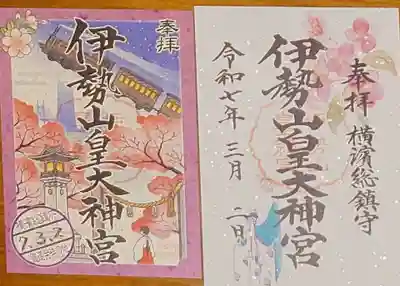 奉拝
伊勢山皇大神宮
7.3.2
奉拝 横濱総鎮守
伊勢山皇大神宮
令和七年 三月 二日